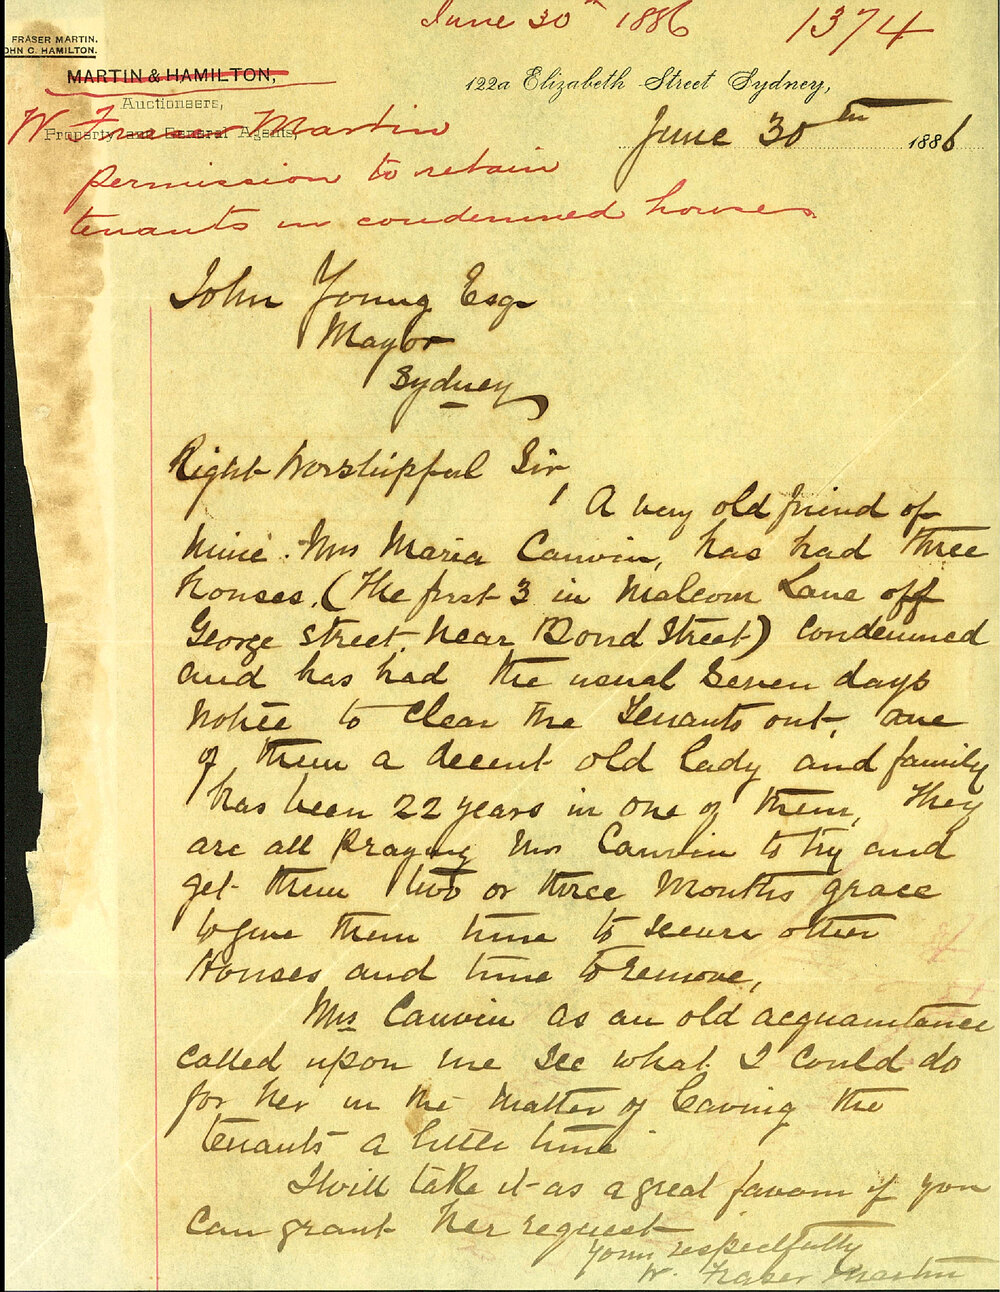 June 30th 1886 1374
FRASER MARTIN.
OHN C. HAMILTON.
MARTIN & HAMILTON,
Auctioneers,
Property and General Agents,
122a Elizabeth Street Sydney,
June 30th 1886
W Fraser Martin
permission to retain
tenants in condemned houses
John Young Esqr
Mayor
Sydney
Right Worshipful Sir,
A very old friend of
mine Mrs Maria Cauvin, has had three
houses, (the first 3 in Malcom Lane off
George Street, near Bond Street) condemned
and has had the usual seven days
notice to clear the tenants out, one
of them a decent old lady and family
has been 22 years in one of them, they
are all praying Mrs Cauvin to try and
get them two or three months grace
to give them time to secure other
houses and time to remove,
Mrs Cauvin as an old acquaintance
called upon me see what I could do
for her in the matter of leaving the
tenants a little time
I will take it as a great favour if you
can grant her request
Your respectfully
W. Fraser Martin